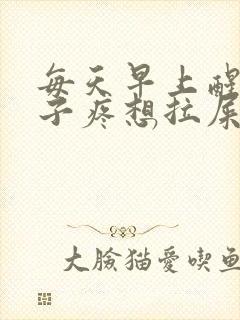 每天早上醒
子疼想拉屎
大脸猫爱喫鱼